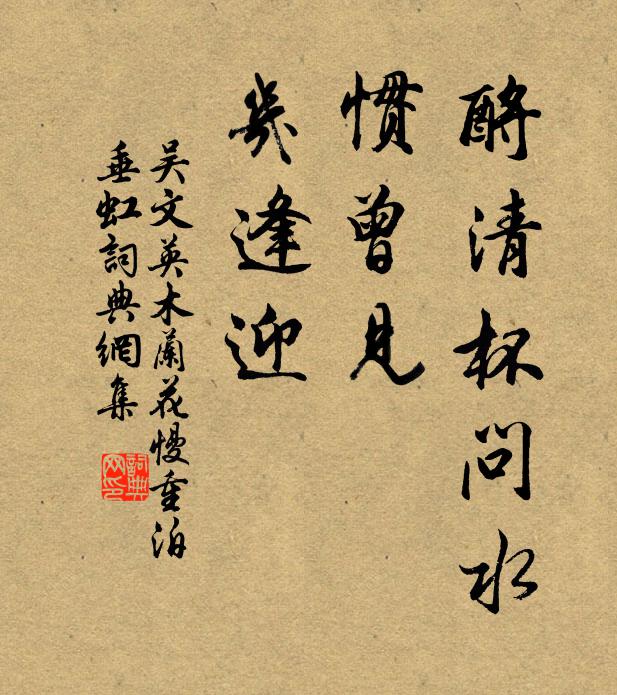 酹清杯问水
惯曾见
几逢迎
吴文英木兰花慢重泊
垂虹词典网集
词典网印